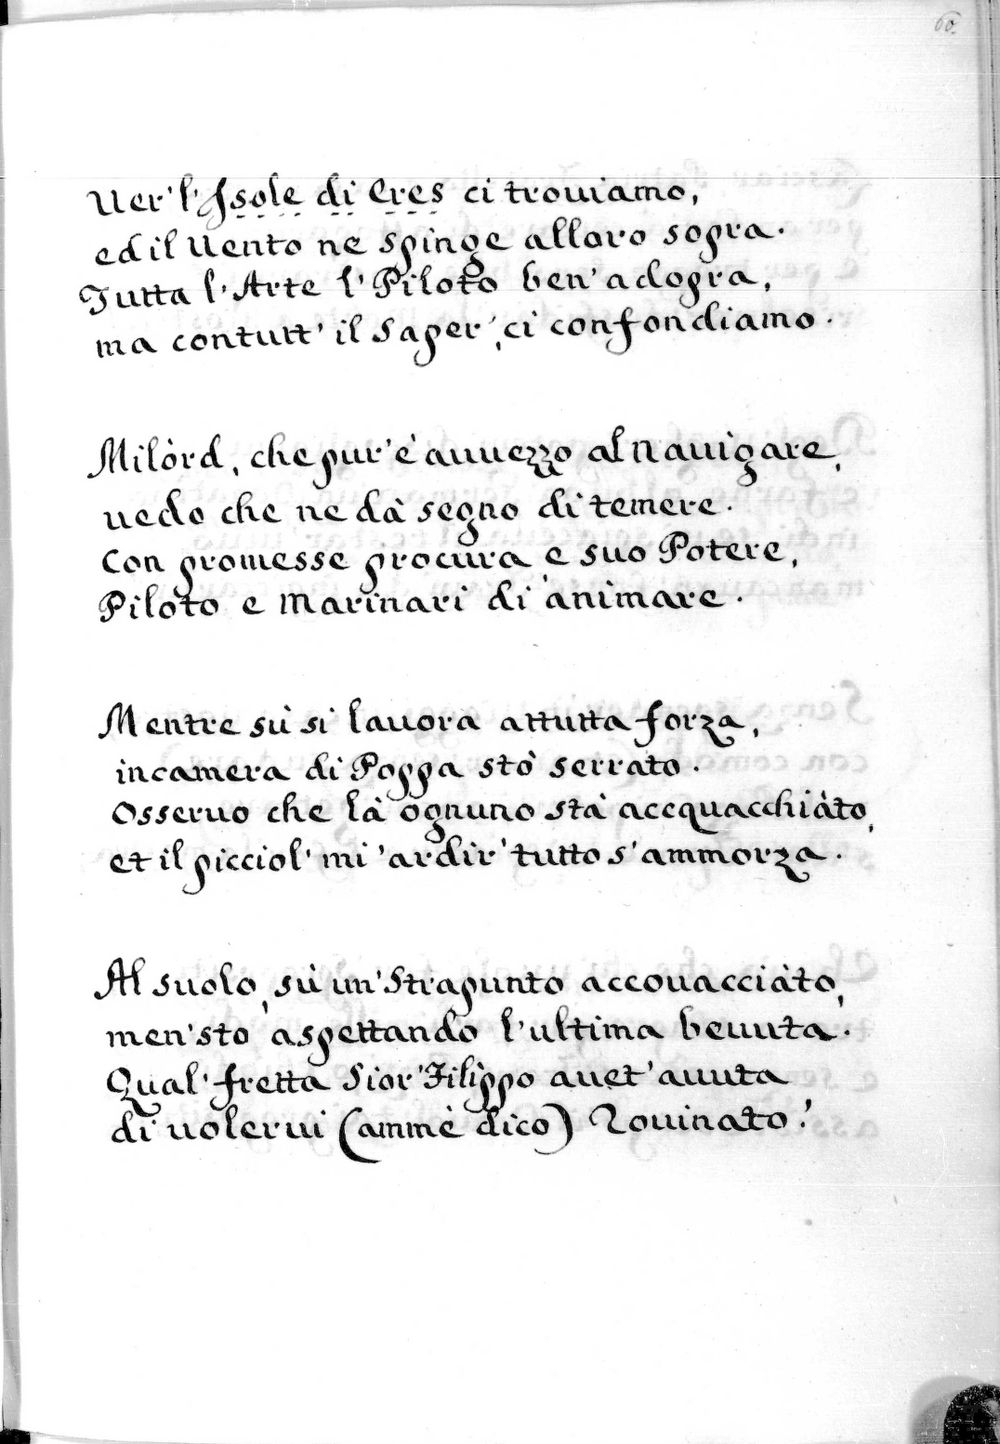 60.
Uer' l' Isole di Cres ci trouiamo,
ed il Uento ne spinge alloro sopra.
Tutta l'Arte l' Piloto ben' adopra,
ma contutt' il saper', ci confondiamo.
Milòrd, che pur' è auuezzo al Nauigare,
uedo che ne dà segno di temere.
Con promesse procura e suo Potere,
Piloto e Marinari di animare.
Mentre sù si lauora attutta forza,
in camera di Poppa stò serrato.
Osseruo che là ognuno stà accquacchiàto,
et il picciol' mi 'ardir' tutto s'ammorza.
Al suolo, sù un' Strapunto accouacciàto,
men'sto aspettando l'ultima beuuta.
Qual' fretta Sior' Filippo auet' auuta
di uolerui (ammè dico) Rouinato!